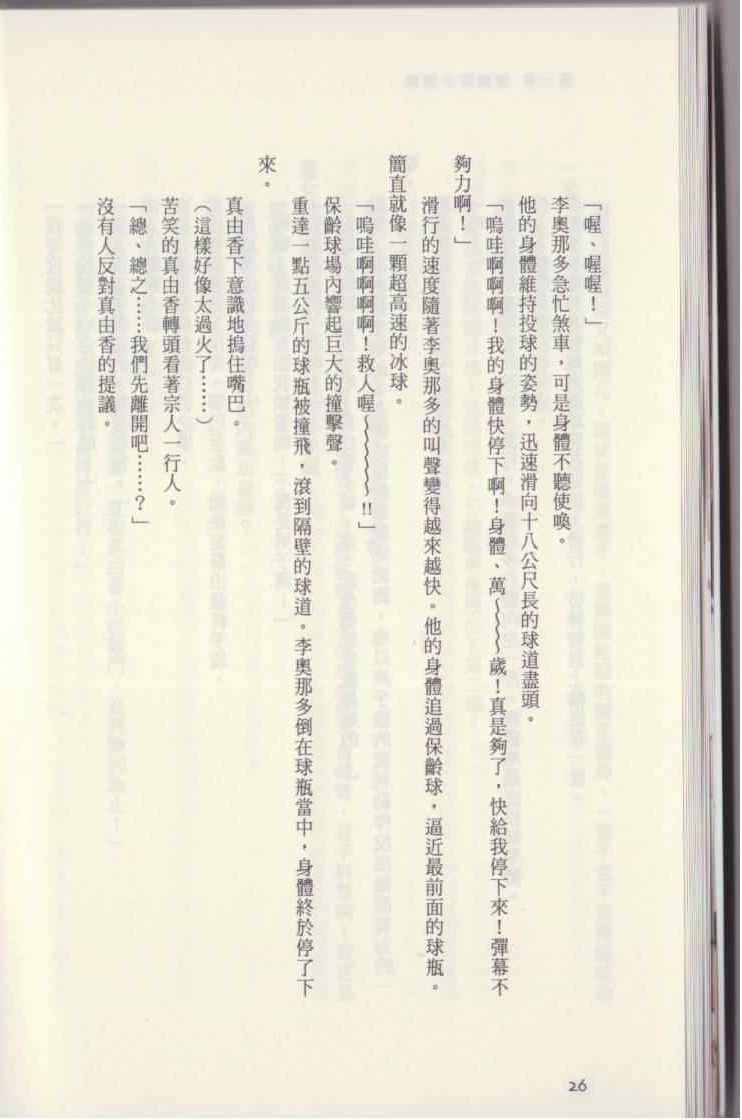 「喔、喔喔！」
李奧那多急忙煞車，可是身體不聽使喚。
他的身體維持投球的姿勢，迅速滑向十八公尺長的球道盡頭。
「嗚哇啊啊啊！我的身體快停下啊！身體、萬～～～～歲！真是夠了，快給我停下來！彈幕不
夠力啊！」
滑行的速度隨著李奧那多的叫聲變得越來越快。他的身體追過保齡球，逼近最前面的球瓶。
簡直就像一顆超高速的冰球。
「嗚哇啊啊啊啊！救人喔～～～～～!!」
保齡球場內響起巨大的撞擊聲。
重達一點五公斤的球瓶被撞飛，滾到隔壁的球道。李奧那多倒在球瓶當中，身體終於停了下
來。
真由香下意識地摀住嘴巴。
（這樣好像太過火了……）
苦笑的真由香轉頭看著宗人一行人。
「總、總之……我們先離開吧……？」
沒有人反對真由香的提議。
26